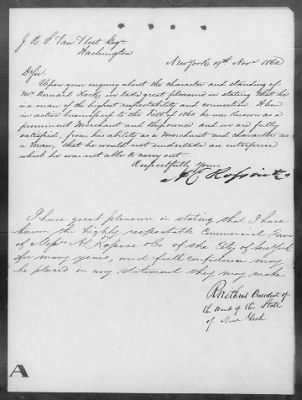 J. R. S. Van Vleet Esq.
Washington
New York 19th Nov 1862
D Sir
Upon your enquiry about the character and standing of
Mr Bernard Kock, we take great pleasure in stating that he
is a man of the highest respectability and connection. When
in active business up to the Fall of 1860 he was known as a
prominent Merchant and Shipowner and we are fully
satisfied, from his ability as a Merchant and character as
a man, that he would not undertake an enterprise
which he was not able to carry out.
Respectfully Yours
I have great pleasure in stating that I have
known the highly respectable Commercial Firm
of Messrs & Co of the City of
for many years, and full confidence may
be placed in any statement they may make
President of
the Bank of the State
of New York
A